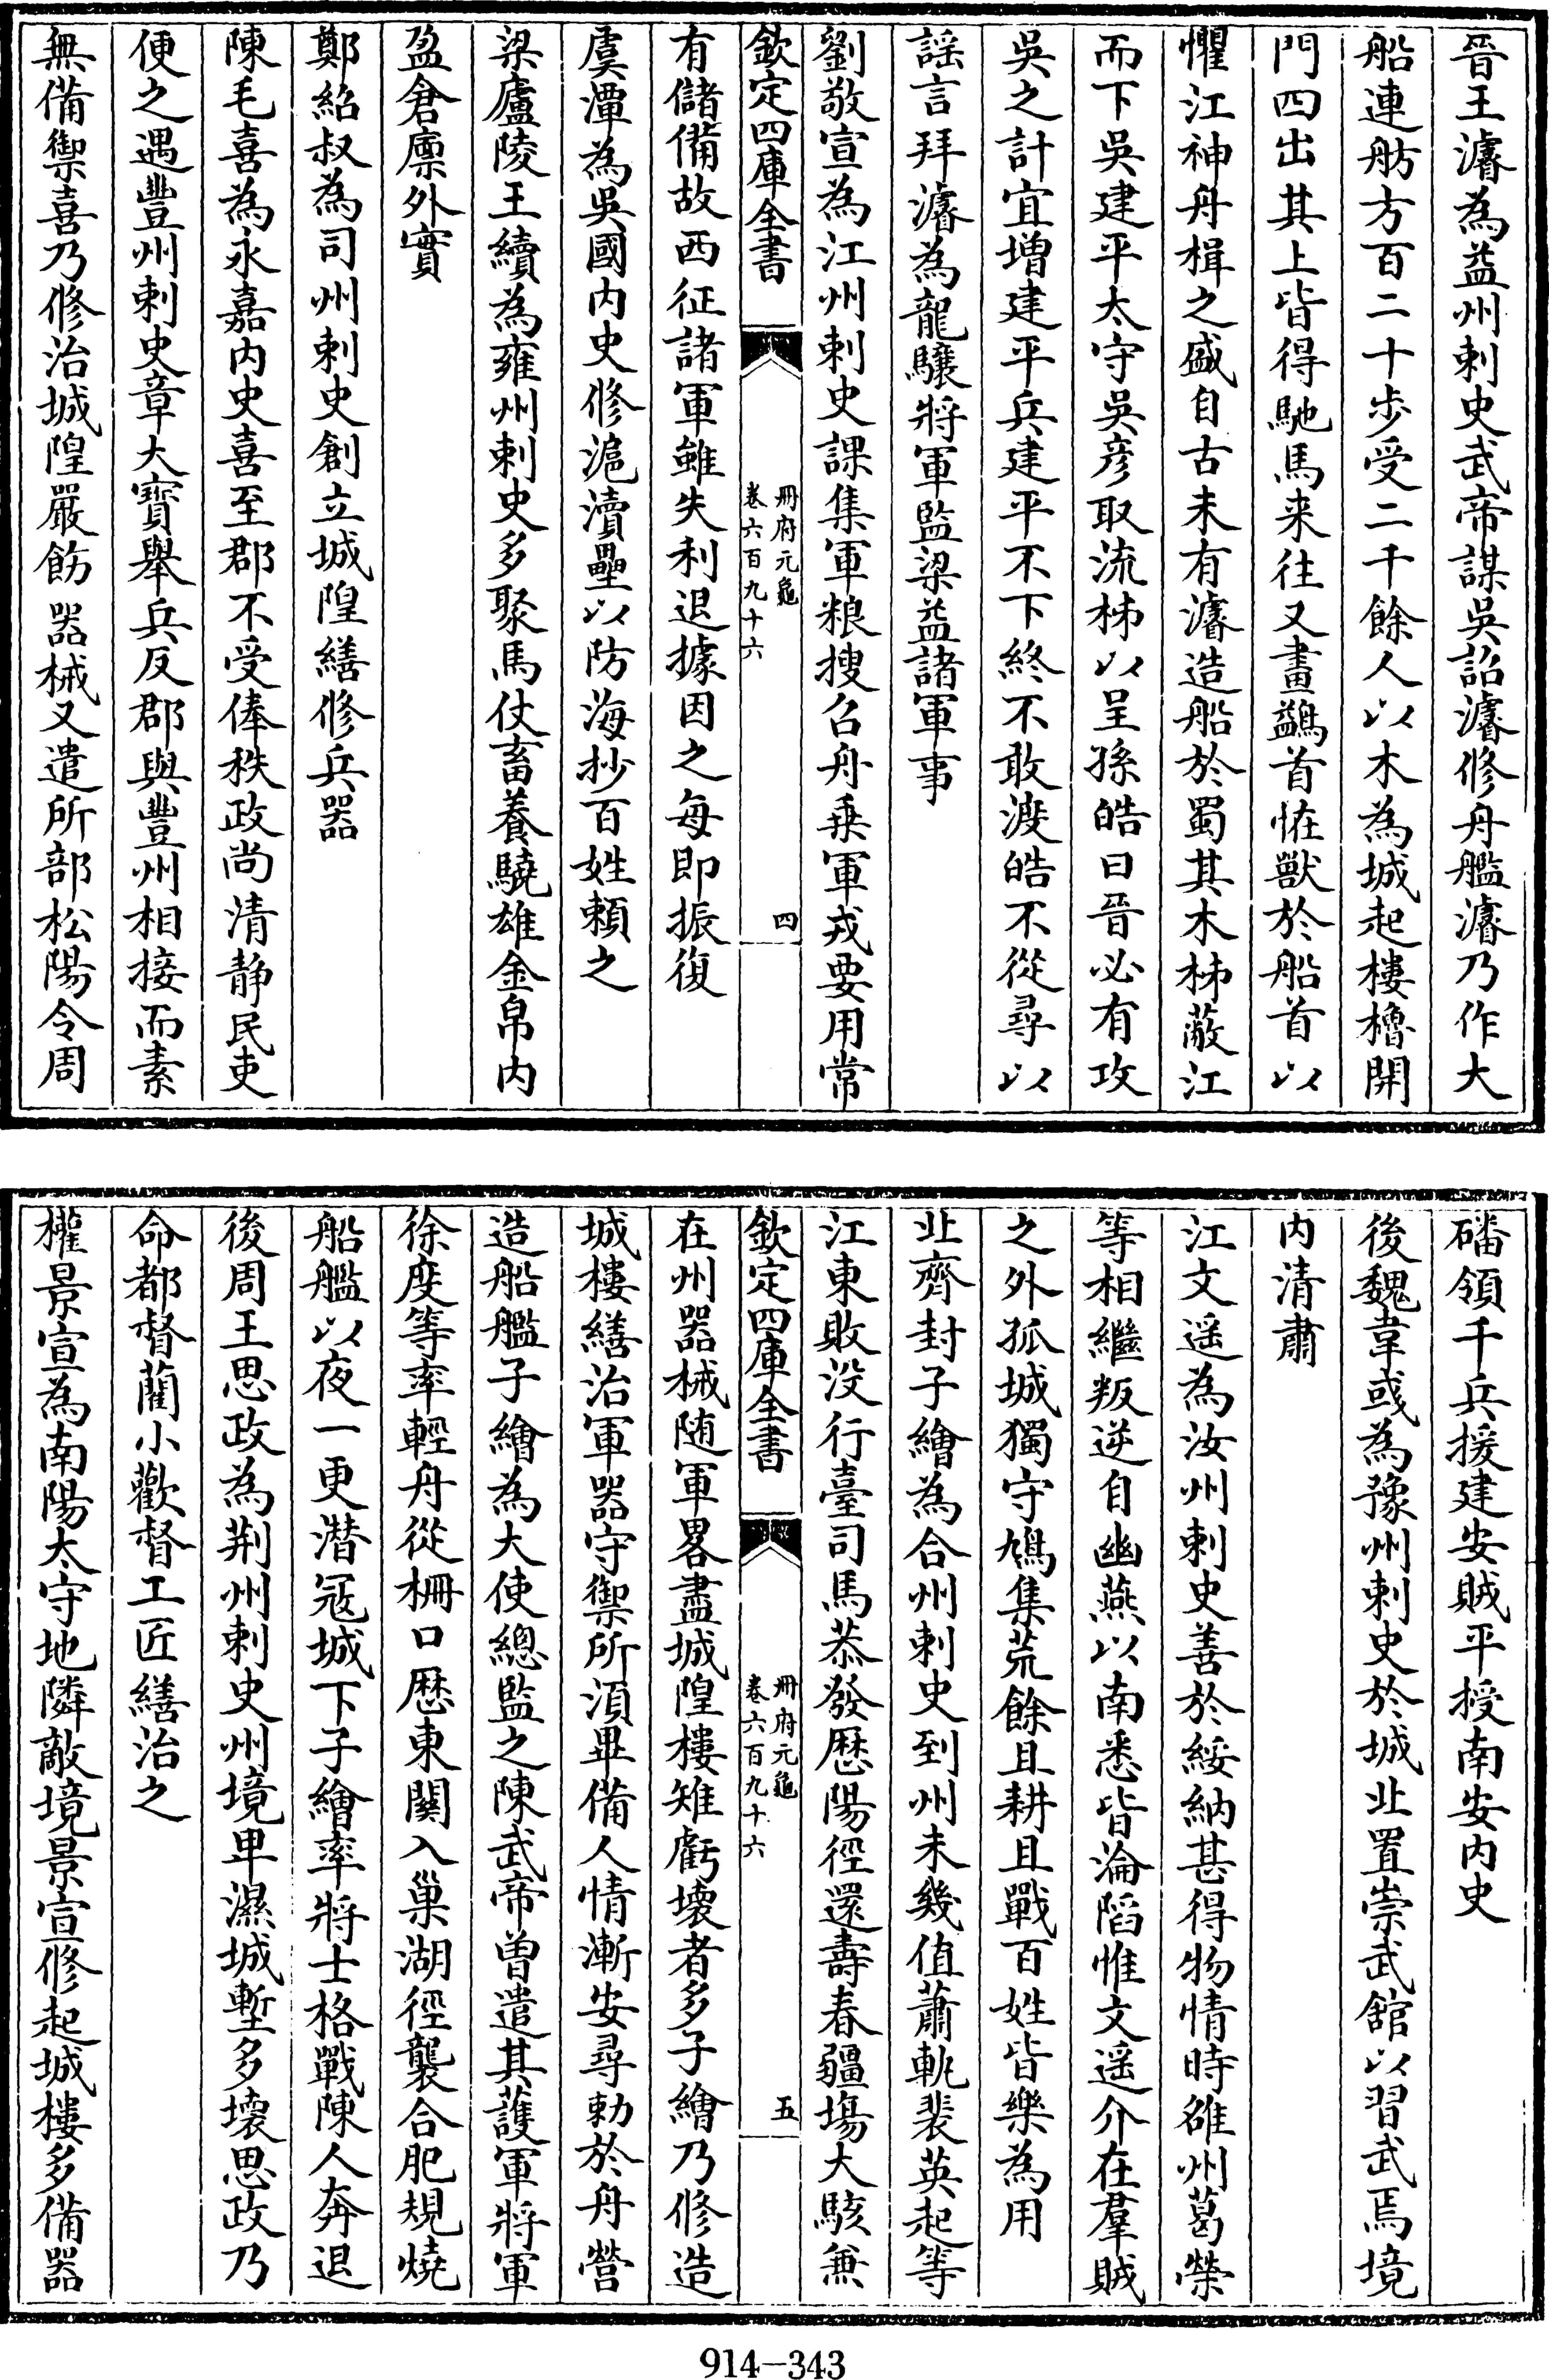 晉王濬為益州刺史武帝謀吳詔濬修舟艦濬乃作大
船連舫方百二十步受二千餘人以木為城起樓櫓開
門四出其上皆得馳馬来往又畫鷁首怪獸於船首以
懼江神舟楫之盛自古未有濬造船於蜀其木柹蔽江
而下吳建平太守吳彦取流柹以呈孫皓曰晉必有攻
吳之計宜增建平兵建平不下終不敢渡皓不從尋以
謡言拜濬為龍驤將軍監梁益諸軍事
劉敬宣為江州刺史課集軍粮搜召舟乗軍戎要用常
欽定四庫全書
冊府元龜
卷六百九十六
四
有儲備故西征諸軍雖失利退據因之每即振復
虞潭為吳國内史修滬瀆壘以防海抄百姓頼之
梁廬陵王續為雍州刺史多聚馬仗畜養驍雄金帛内
盈倉廪外實
鄭紹叔為司州刺史創立城隍繕修兵器
陳毛喜為永嘉内史喜至郡不受俸秩政尚清静民吏
便之遇豐州刺史章大寶舉兵反郡與豐州相接而素
無備禦喜乃修治城隍嚴飭器械又遣所部松陽令周
磻領千兵援建安賊平授南安内史
後魏韋彧為豫州刺史於城北置崇武舘以習武焉境
内清肅
江文遥為汝州刺史善於綏納甚得物情時雒州葛榮
等相繼叛逆自幽燕以南悉皆淪陷惟文遥介在羣賊
之外孤城獨守鳩集荒餘且耕且戰百姓皆樂為用
北齊封子繪為合州刺史到州未幾值蕭軌裴英起等
江東敗没行臺司馬恭發歴陽徑還壽春疆塲大駭兼
欽定四庫全書
冊府元龜
卷六百九十六
五
在州器械随軍畧盡城隍樓雉虧壊者多子繪乃修造
城樓繕治軍器守禦所湏畢備人情漸安尋勅於舟營
造船艦子繪為大使總監之陳武帝曽遣其護軍將軍
徐度等率輕舟從柵口歴東闗入巢湖徑襲合肥規燒
船艦以夜一更潜冦城下子繪率將士格戰陳人奔退
後周王思政為荆州刺史州境卑濕城塹多壊思政乃
命都督藺小歡督工匠繕治之
權景宣為南陽太守地隣敵境景宣修起城樓多備器
914-343